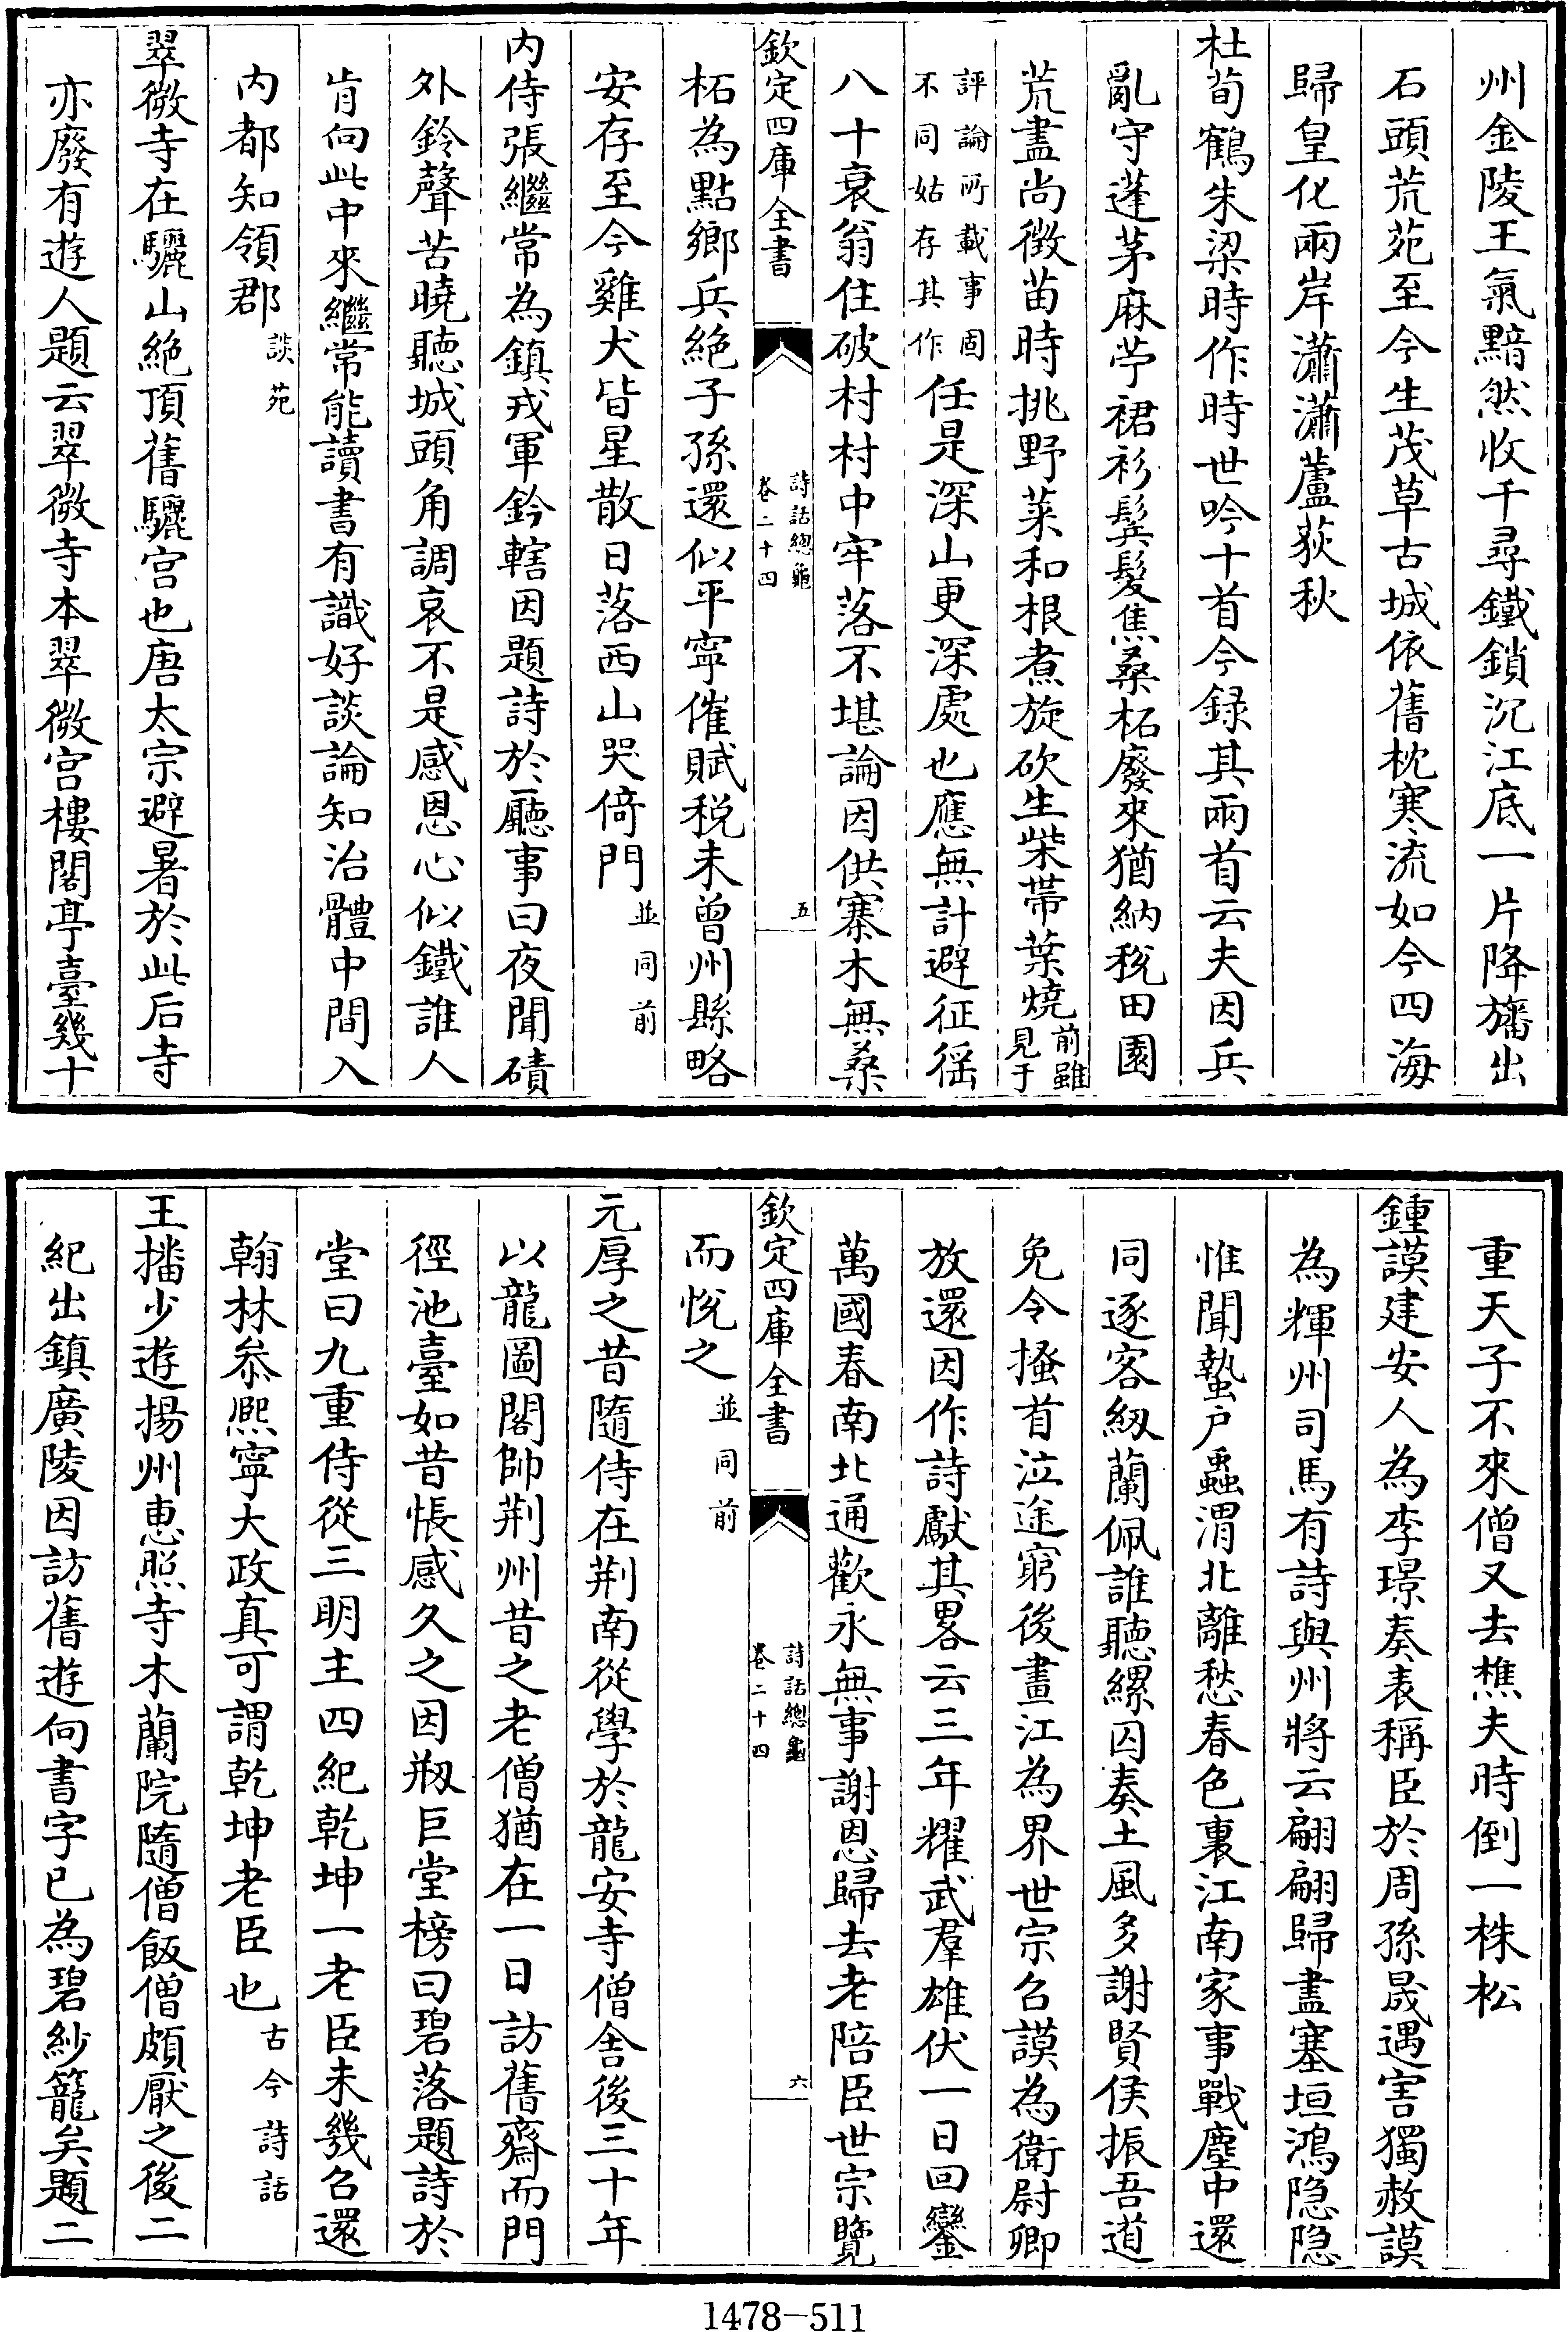 州金陵王氣黯然收千尋鐵鎖沉江底一片降旛出
石頭荒苑至今生茂草古城依舊枕寒流如今四海
歸皇化兩岸瀟瀟蘆荻秋
杜荀鶴朱梁時作時世吟十首今録其兩首云夫因兵
亂守蓬茅麻苧裙衫鬂髮焦桑柘廢來猶納稅田園
荒盡尚徴苗時挑野菜和根煮旋砍生柴帶葉燒前雖見于
評論所載事固不同姑存其作任是深山更深處也應無計避征徭
八十衰翁住破村村中牢落不堪論因供寨木無桑
欽定四庫全書
詩話總龜
卷二十四
五
柘為點鄉兵絶子孫還似平寧催賦税未曾州縣略
安存至今雞犬皆星散日落西山哭倚門並同前
内侍張繼常為鎮戎軍鈐轄因題詩於廳事曰夜聞磧
外鈴聲苦曉聽城頭角調哀不是感恩心似鐵誰人
肯向此中來繼常能讀書有識好談論知治體中間入
内都知領郡談苑
翠微寺在驪山絶頂舊驪宫也唐太宗避暑於此后寺
亦廢有遊人題云翠微寺本翠微宫樓閣亭臺幾十
重天子不來僧又去樵夫時倒一株松
鍾謨建安人為李璟奏表稱臣於周孫晟遇害獨赦謨
為輝州司馬有詩與州將云翩翩歸盡塞垣鴻隐隐
惟聞蟄户蟲渭北離愁春色裏江南家事戰塵中還
同逐客紉蘭佩誰聽縲囚奏土風多謝賢侯振吾道
免令搔首泣途窮後畫江為界世宗召謨為衛尉卿
放還因作詩獻其畧云三年耀武羣雄伏一日回鑾
萬國春南北通歡永無事謝恩歸去老陪臣世宗覽
欽定四庫全書
詩話總龜
卷二十四
六
而悅之並同前
元厚之昔隨侍在荆南從學於龍安寺僧舍後三十年
以龍圖閣帥荆州昔之老僧猶在一日訪舊齋而門
徑池臺如昔悵感久之因剏巨堂榜曰碧落題詩於
堂曰九重侍從三明主四紀乾坤一老臣未幾召還
翰林叅熙寧大政真可謂乾坤老臣也古今詩話
王播少遊揚州惠照寺木蘭院隨僧飯僧頗厭之後二
紀出鎮廣陵因訪舊遊向書字已為碧紗籠矣題二
1478-511